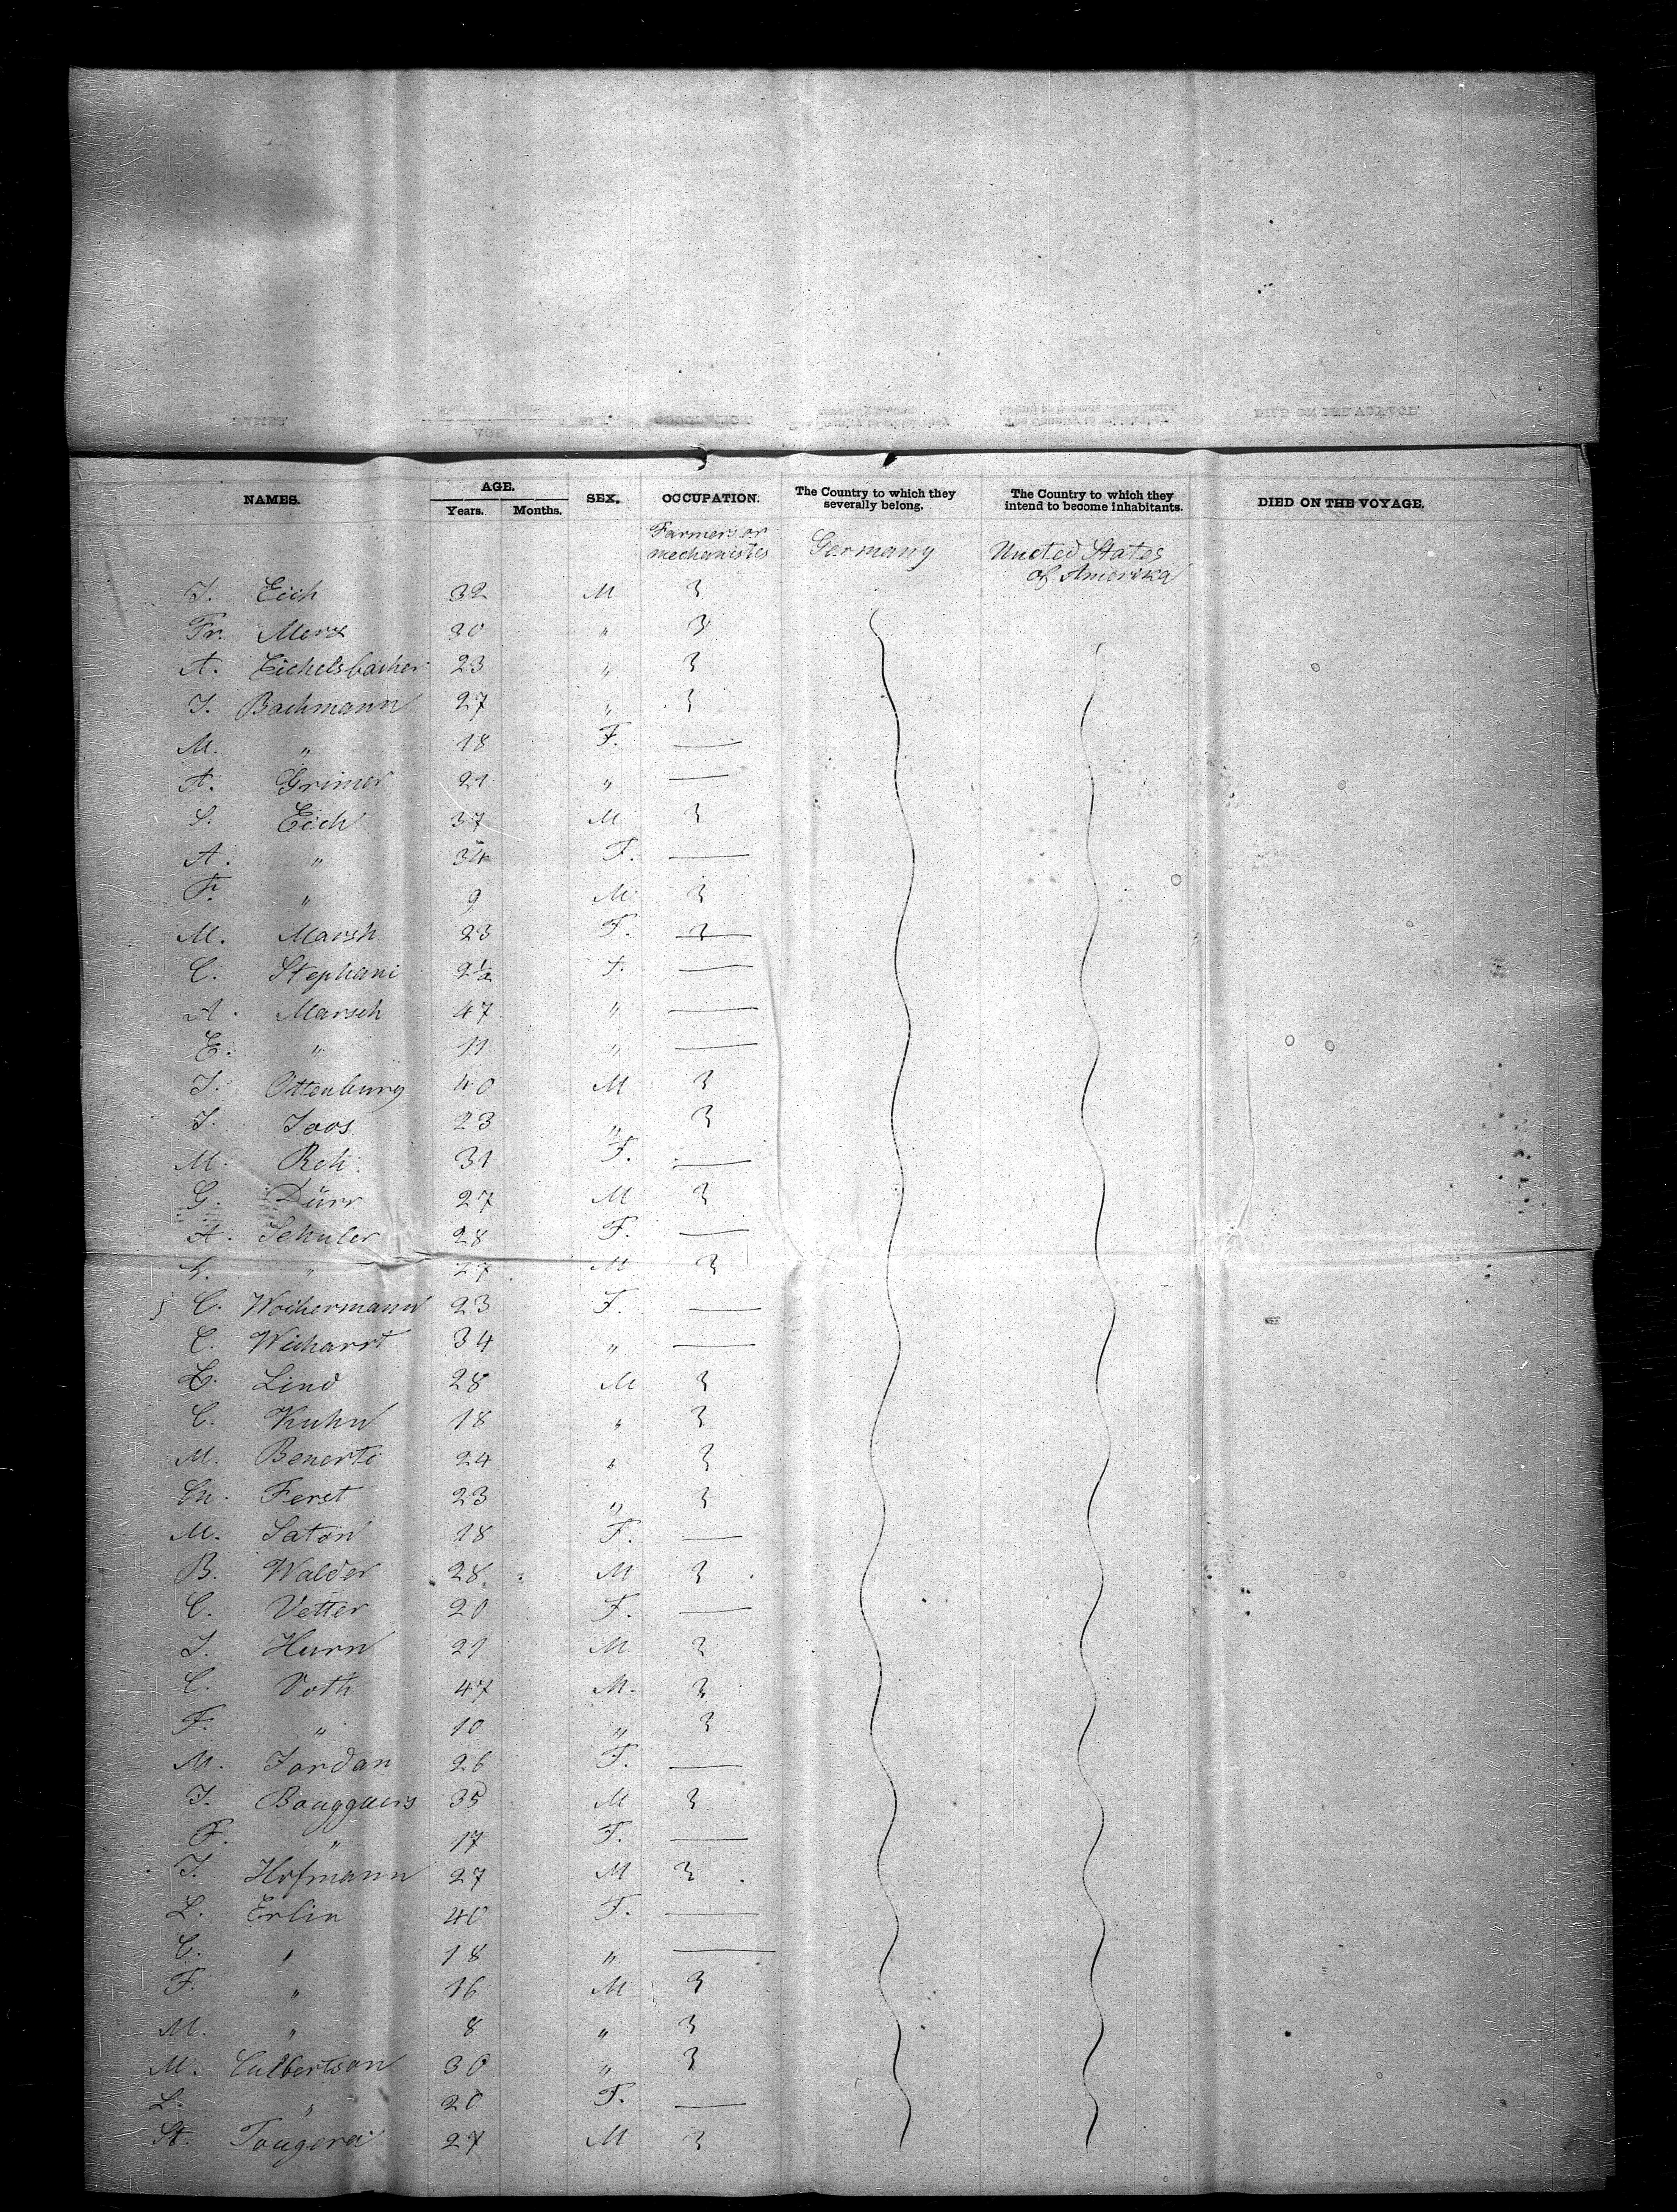 NAMES. AGE. SEX. OCCUPATION. The Country to which they severally belong. The Country to which they intend to become inhabitants. DIED ON THE VOYAGE.
Years. Months.
Farmers or mechanistes Germany United States of Amerika
J. Eich 32 M 3
Fr. Merz 30 " 3
A. Eichelsbacher 23 " 3
J. Bachmann 27 " 3
M. " 18 F. —
A. Grimer 21 " —
S. Eich 37 M 3
A. " 34 F. —
F. " 9 M 3
M. Marsh 23 F. 3
C. Stephani 2½ F. —
A. Marsch 47 " —
E. " 11 " —
J. Ottenburg 40 M 3
J. Joos 23 " 3
M. Reh 31 F. —
G. Dürr 27 M 3
A. Schuler 28 F. —
" 27 M 3
C. Wochermann 23 F. —
C. Wicharrt 34 " —
Lind 28 M 3
C. Kuhn 18 " 3
M. Benerti 24 " 3
Ferst 23 " 3
M. Saton 18 F. —
B. Walder 28 M 3
C. Vetter 20 F. —
J. Hurn 21 M 3
C. Voth 47 M. 3
F. " 10 " 3
M. Jordan 26 F. —
J. Bougguers 35 M 3
F. " 17 F. —
J. Hofmann 27 M 3
L. Erlin 40 F. —
C. " 18 " —
F. " 16 M 3
M. " 8 " 3
M. Culbertson 30 " 3
L. " 20 F. —
St. Tougerei 27 M 3